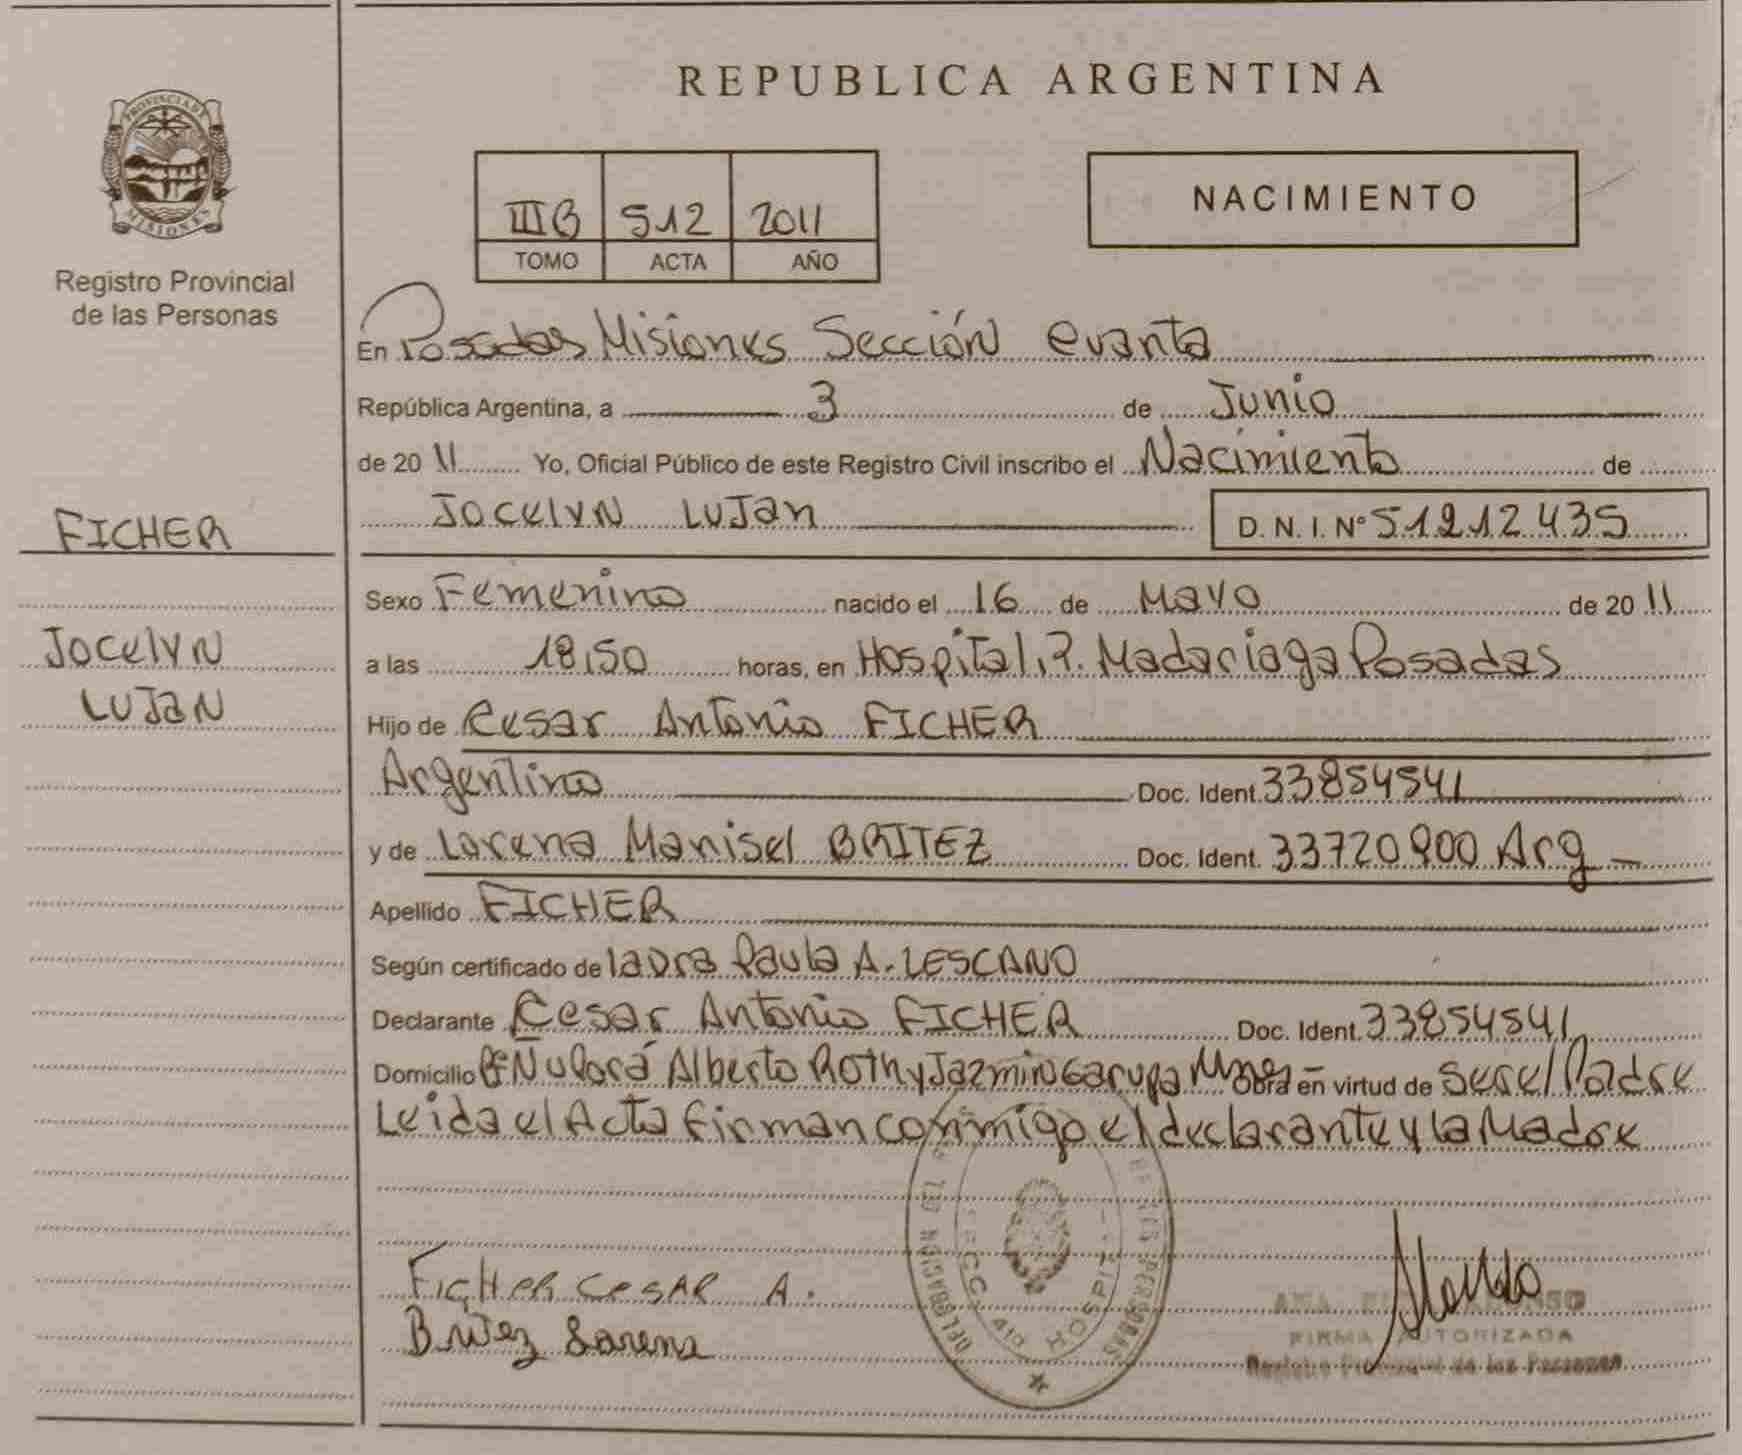 REPUBLICA ARGENTINA
PROVINCIA DE
MISIONES
Registro Provincial
de las Personas
IIIB 512 2011
TOMO ACTA AÑO
NACIMIENTO
En Posadas Misiones Sección cuarta
República Argentina, a 3 de Junio
de 2011 Yo, Oficial Público de este Registro Civil inscribo el Nacimiento de
Jocelyn Lujan D.N.I. Nº 51212435
FICHER
Jocelyn
Lujan
Sexo Femenino nacido el 16 de Mayo de 2011
a las 18,50 horas, en Hospital, R. Madariaga Posadas
Hijo de Cesar Antonio FICHER
Argentino Doc. Ident. 33854541
y de Lorena Marisel BRITEZ Doc. Ident. 33720900 Arg
Apellido FICHER
Según certificado de la Dra Paula A. LESCANO
Declarante Cesar Antonio FICHER Doc. Ident. 33854541
Domicilio Bº Ñu Porá Alberto Roth y Jazmin Garupa Mnes Obra en virtud de Ser el Padre
Leida el Acta firman conmigo el declarante y la Madre
FicHER CesAR A.
Britez Lorena
FIRMA AUTORIZADA
Registro Provincial de las Personas